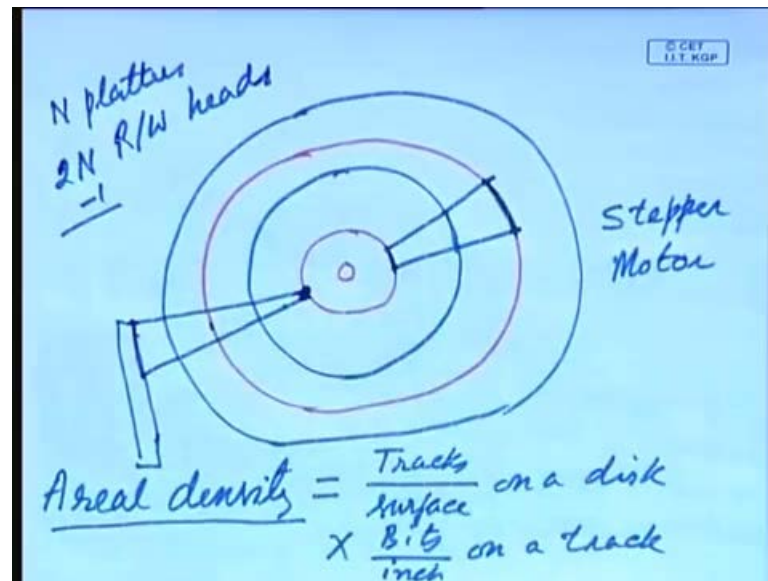 © CET
I.I.T. KGP
N platters
2N R/W heads
-1
Stepper
Motor
Areal density = Tracks/surface on a disk
x Bits/inch on a track